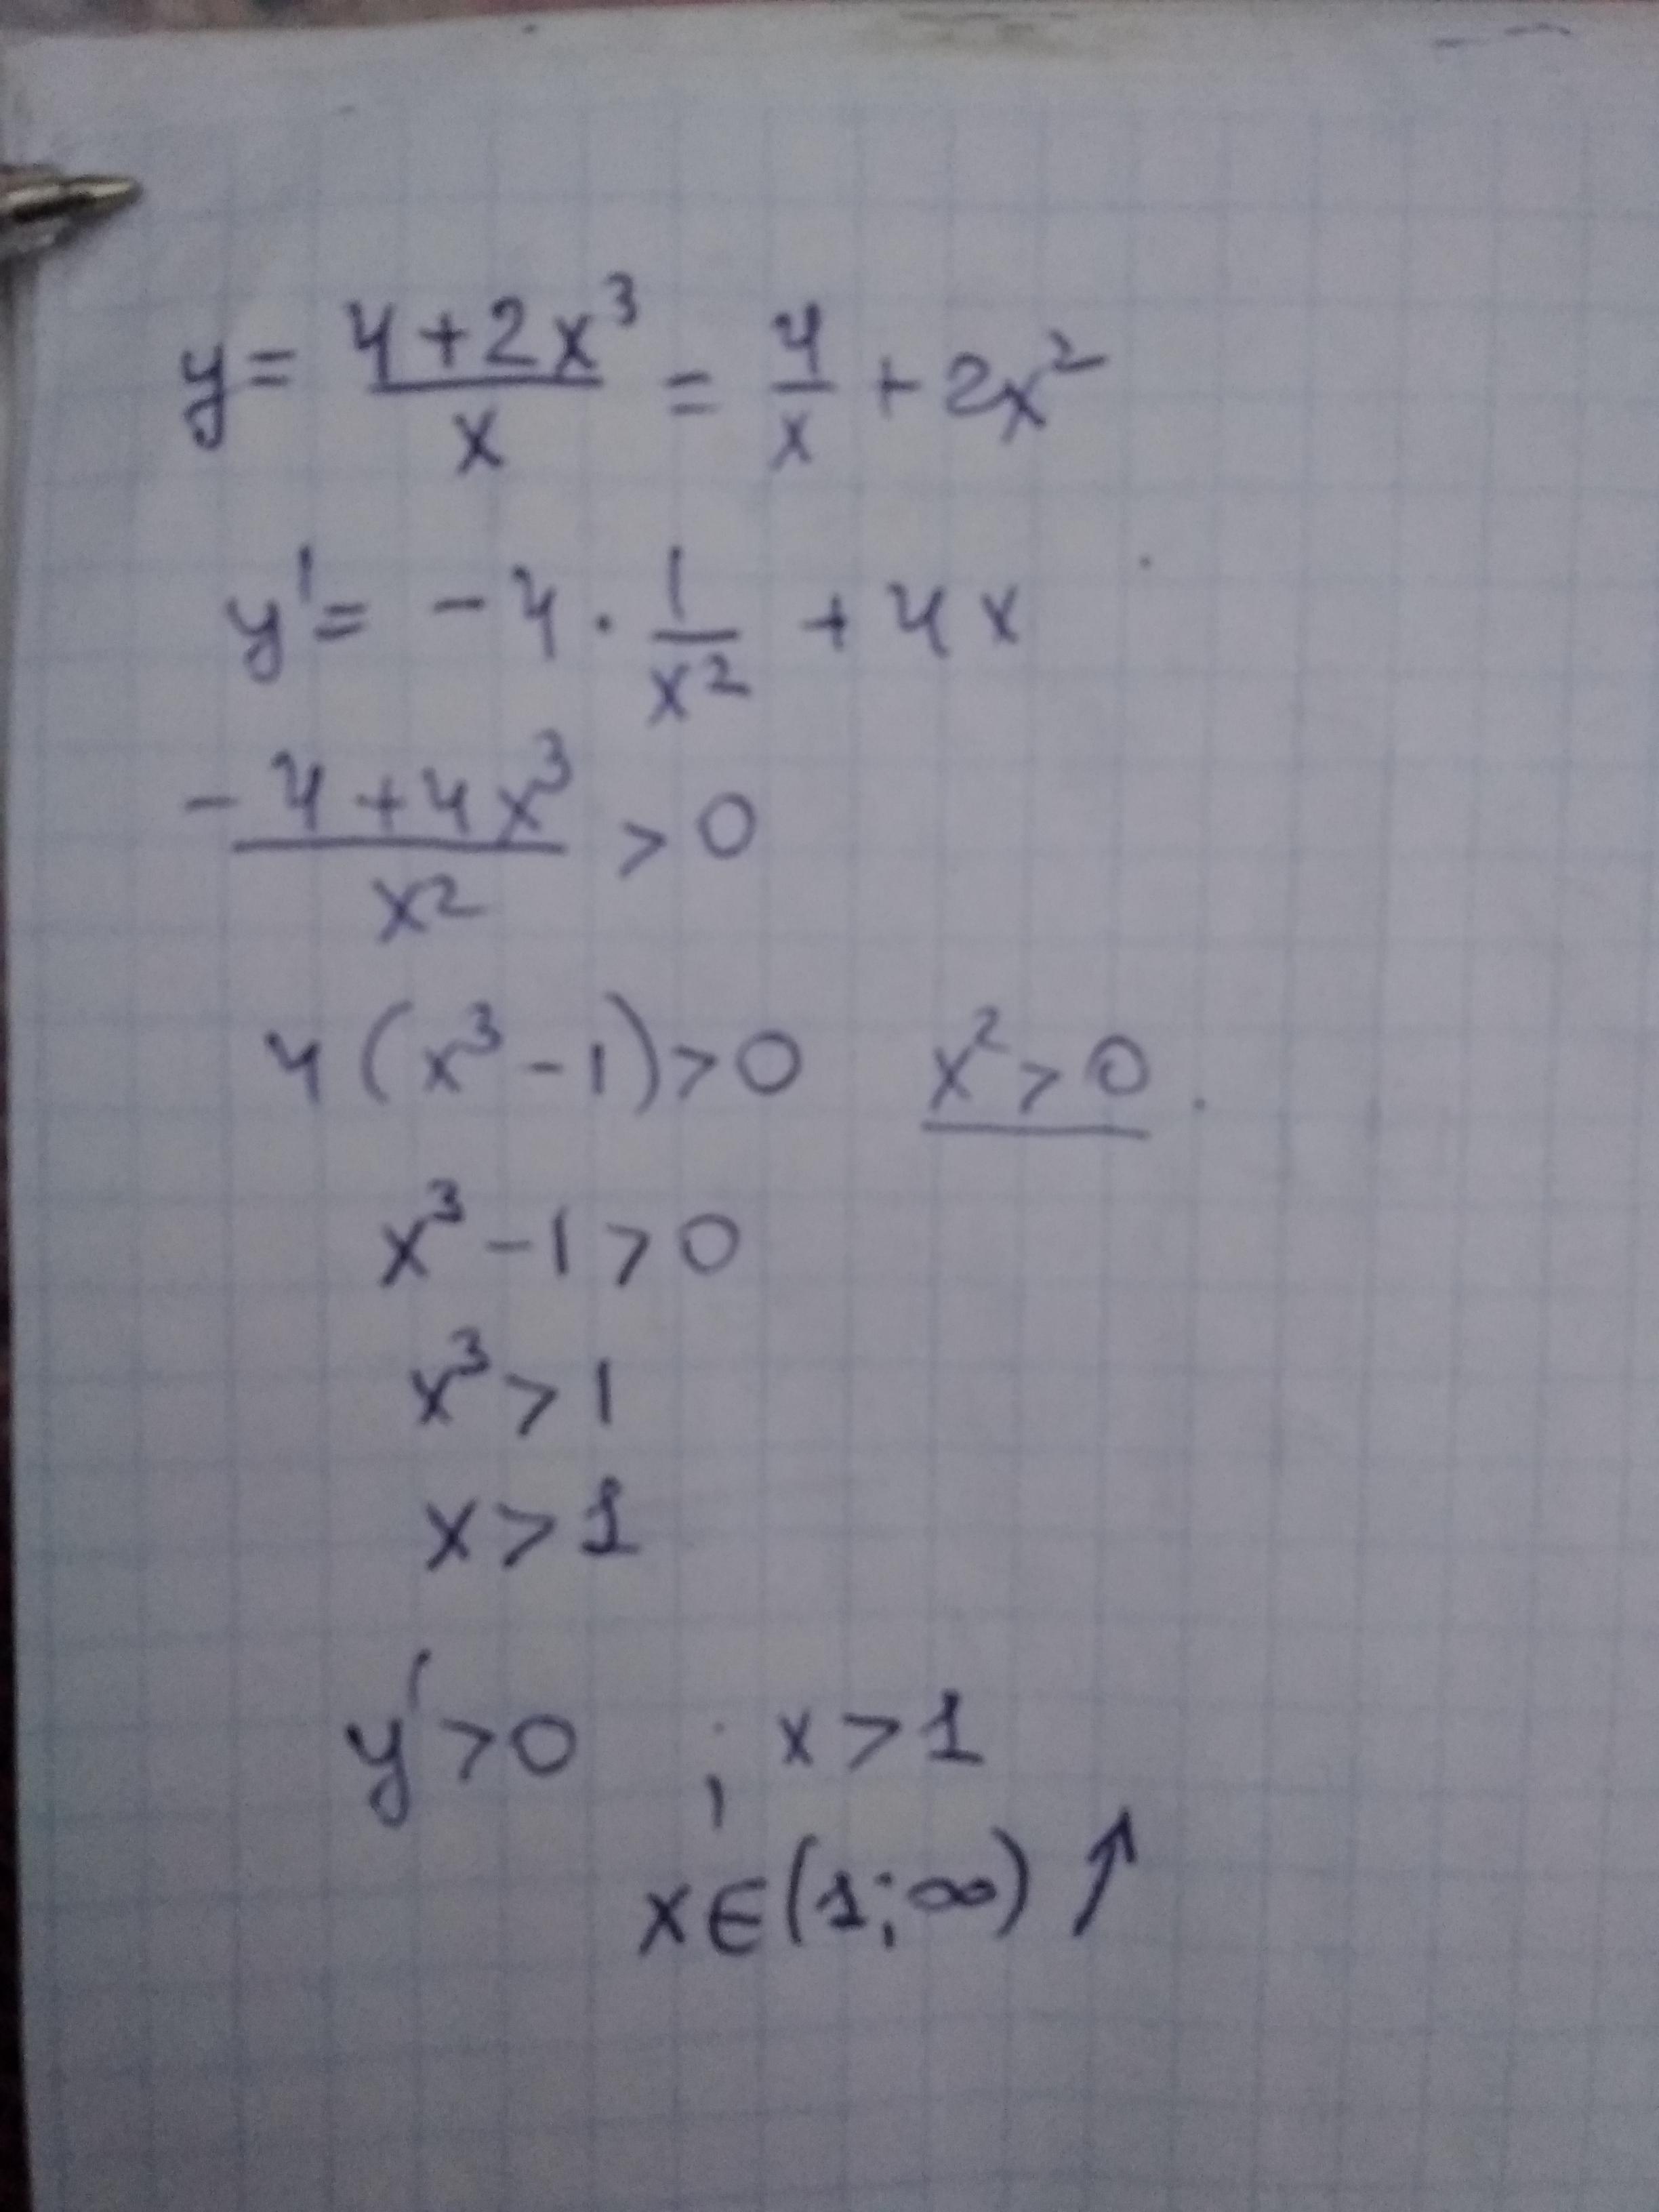 y = (4+2x³)/x = 4/x + 2x²
y' = -4 · 1/x² + 4x
(-4+4x³)/x² > 0
4(x³-1)>0 x²>0.
x³-1>0
x³>1
x>1
y'>0 ; x>1
x∈(1;∞) ↑